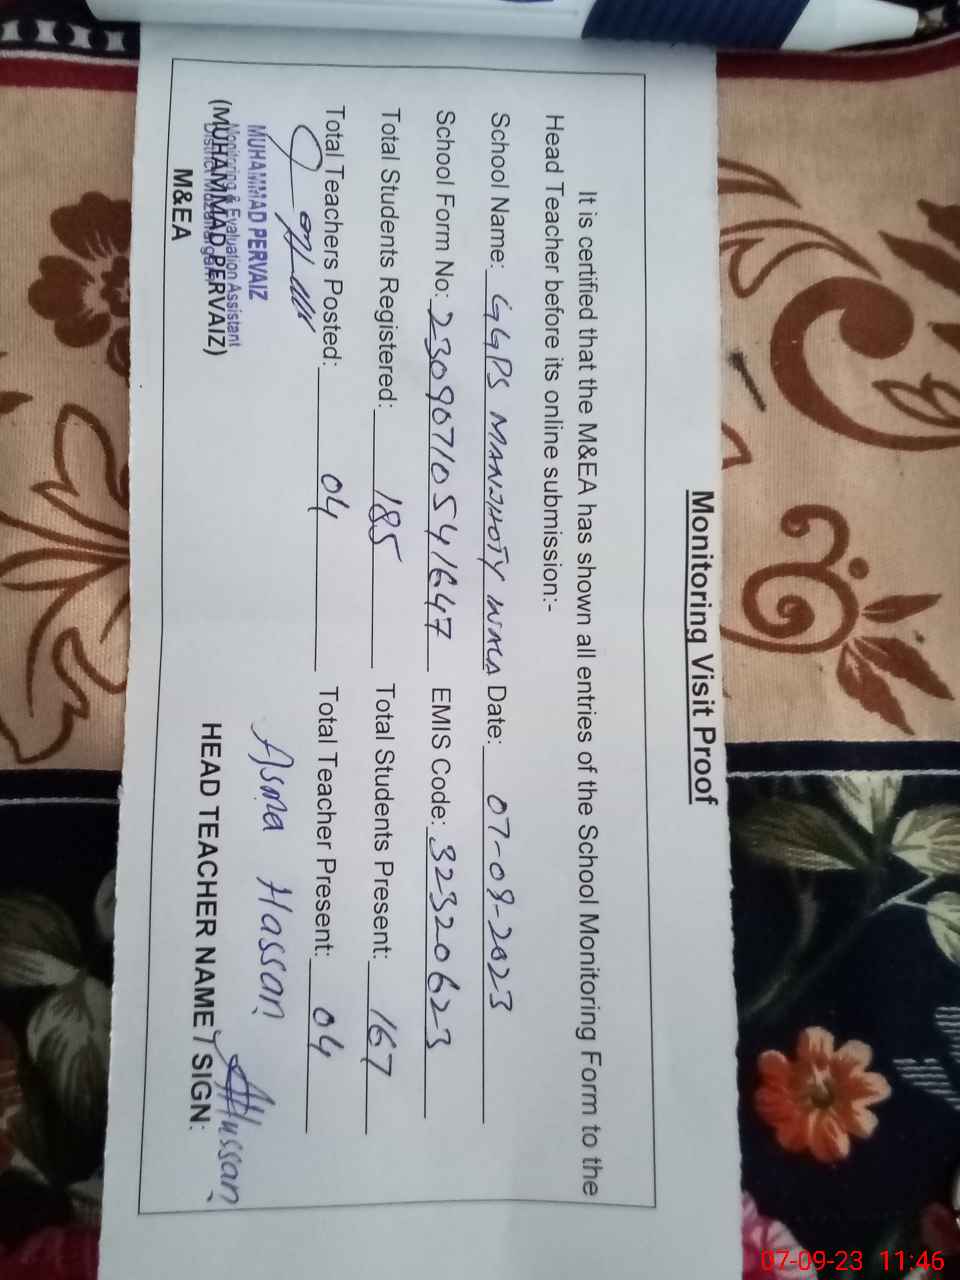 Monitoring Visit Proof
It is certified that the M&EA has shown all entries of the School Monitoring Form to the
Head Teacher before its online submission:-
School Name: GGPS MANJHOTY WALA Date: 07-09-2023
School Form No: 23090710541647 EMIS Code: 32320623
Total Students Registered: 185 Total Students Present: 167
Total Teachers Posted: 04 Total Teacher Present: 04
MUHAMMAD PERVAIZ
Monitoring & Evaluation Assistant
District Muzaffargarh
(MUHAMMAD PERVAIZ)
M&EA
Asma Hassan
HEAD TEACHER NAME / SIGN:
07-09-23 11:46